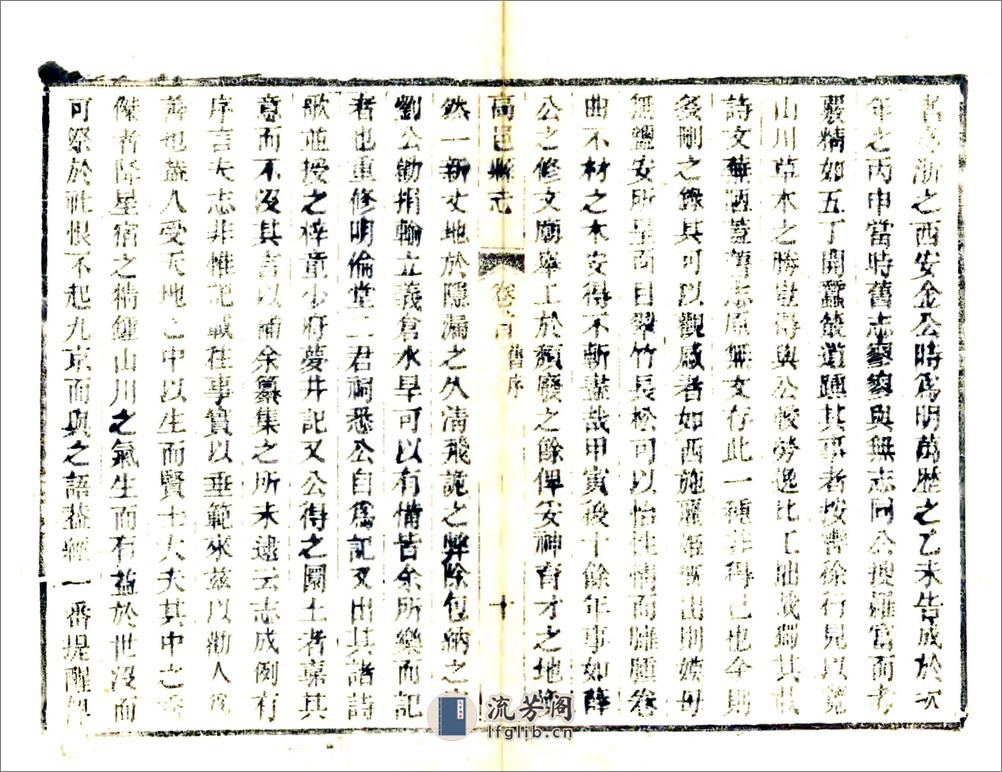 者為浙之西安金公時為明萬歷之乙未告成於次
年之丙申當時舊志寥寥與無志同公搜羅富而考
覈精如五丁開蠶叢道踵其事者按轡徐行見以為
山川草木之勝豈得與公較勞逸比工拙哉獨其以
詩文藝西舊志原無文存此一種非得已也今則
多剛之緣其可以觀感者如西施麗姬既出則嫫母
無鹽安所呈面目翠竹長松可以怡性情而臃腫卷
曲不材之木安得不斬盡哉甲寅後十餘年事如薛
公之修文廟舉工於頹廢之餘俾安神育才之地煥
高邑縣志 卷首 舊序 十
然一新丈地於隱漏之久清飛詭之弊除包納之
劉公勸捐輸立義倉水旱可以有備皆余所樂而記
者也重修明倫堂二君祠悉公自為記又出其諸詩
歌並授之梓童少府夢井記又公得之園土者嘉其
意而不沒其言以補余纂集之所未逮云志成例有
序言夫志非惟記載往事實以垂範來茲以勸人為
善也蓋人受天地之中以生而賢士大夫其中之
傑者降星宿之精鍾山川之氣生而有益於世沒而
可祭於社恨不起九京而與之語益經一番提醒
流芳阁
lfglib.cn